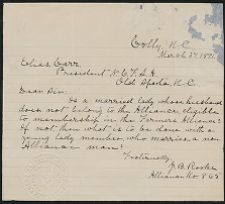 Colly, N.C.
March 27, 1891
Elias Carr,
President N.C.F.S.A.
Old Sparta, N.C.
Dear Sir:
Is a married lady whose husband
does not belong to the Alliance, eligible
to membership in the Farmers Alliance?
If not then what is to be done with a
young lady member, who marries a non
Alliance man?
Fraternally
Alliance No 805